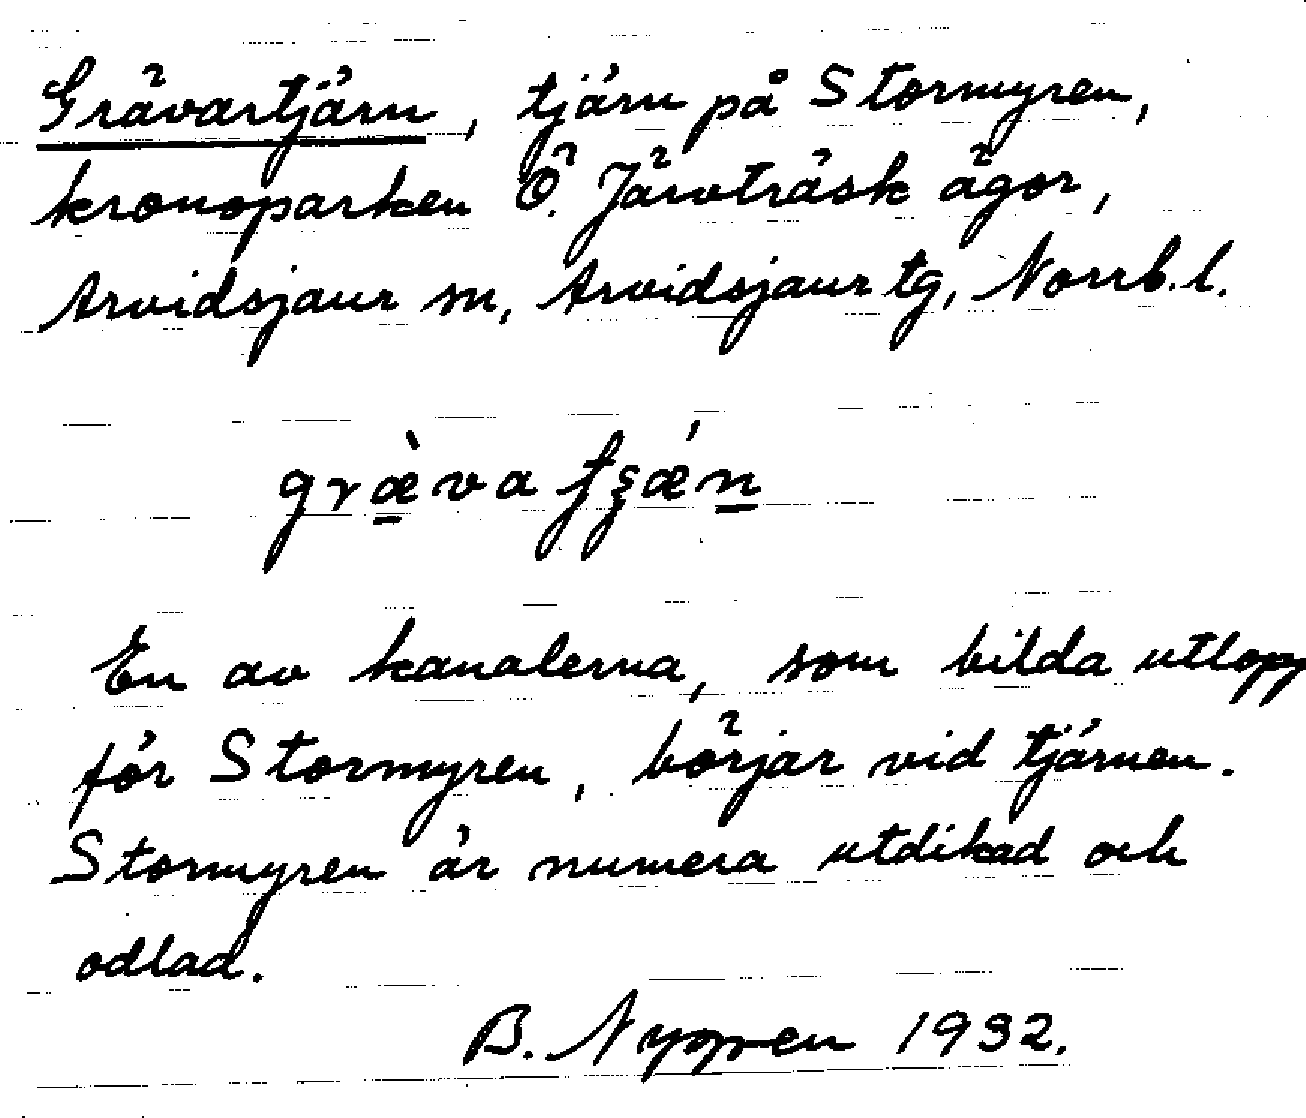 Grävartjärn, tjärn på Stormyren,
kronoparken Ö. Järvträsk ägor,
Arvidsjaur sn, Arvidsjaur tg, Norrb.l.
græ̀va tʂǽn
En av kanalerna, som bilda utlopp
för Stormyren, börjar vid tjärnen.
Stormyren är numera utdikad och
odlad.
B. Nygren 1932.